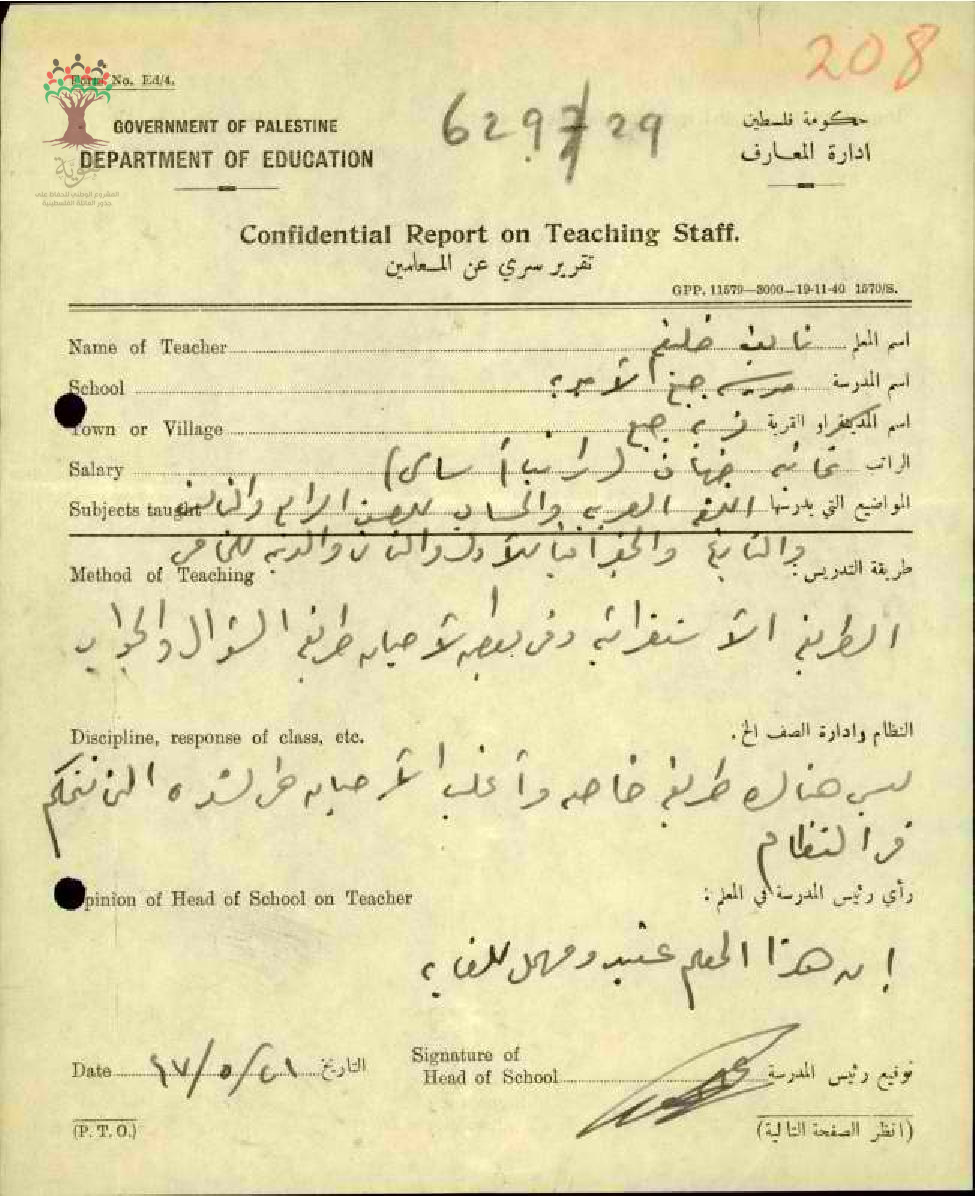 208
Form No. Ed/4.
GOVERNMENT OF PALESTINE
DEPARTMENT OF EDUCATION
629 29
حكومة فلسطين
ادارة المعارف
المشروع الوطني للحفاظ على
جذور العائلة الفلسطينية
Confidential Report on Teaching Staff.
تقرير سري عن المعلمين
GPP. 11579—3000—19-11-40 1570/S.
Name of Teacher نايف اسم المعلم
School مدرسة جبع الأميرية اسم المدرسة
Town or Village قرية جبع اسم المدينة او القرية
Salary ثمانية جنيهات (راتب أساسي) الراتب
Subjects taught اللغة العربية والحساب للصف الرابع والثالث المواضيع التي يدرسها
والجغرافيا للأول والثاني
Method of Teaching طريقة التدريس
الطريقة الاستقرائية وفي بعض الأحيان طريقة السؤال والجواب
Discipline, response of class, etc. النظام وادارة الصف الخ.
ليس هناك طريقة خاصة وأغلب الأحيان الشدة التي تتحكم
في النظام
Opinion of Head of School on Teacher رأي رئيس المدرسة في المعلم:
إن هذا المعلم عنيد ومهمل للغاية
Date ٤٧/٥/٢١ التاريخ
Signature of
Head of School توقيع رئيس المدرسة
(P. T. O.) (انظر الصفحة التالية)